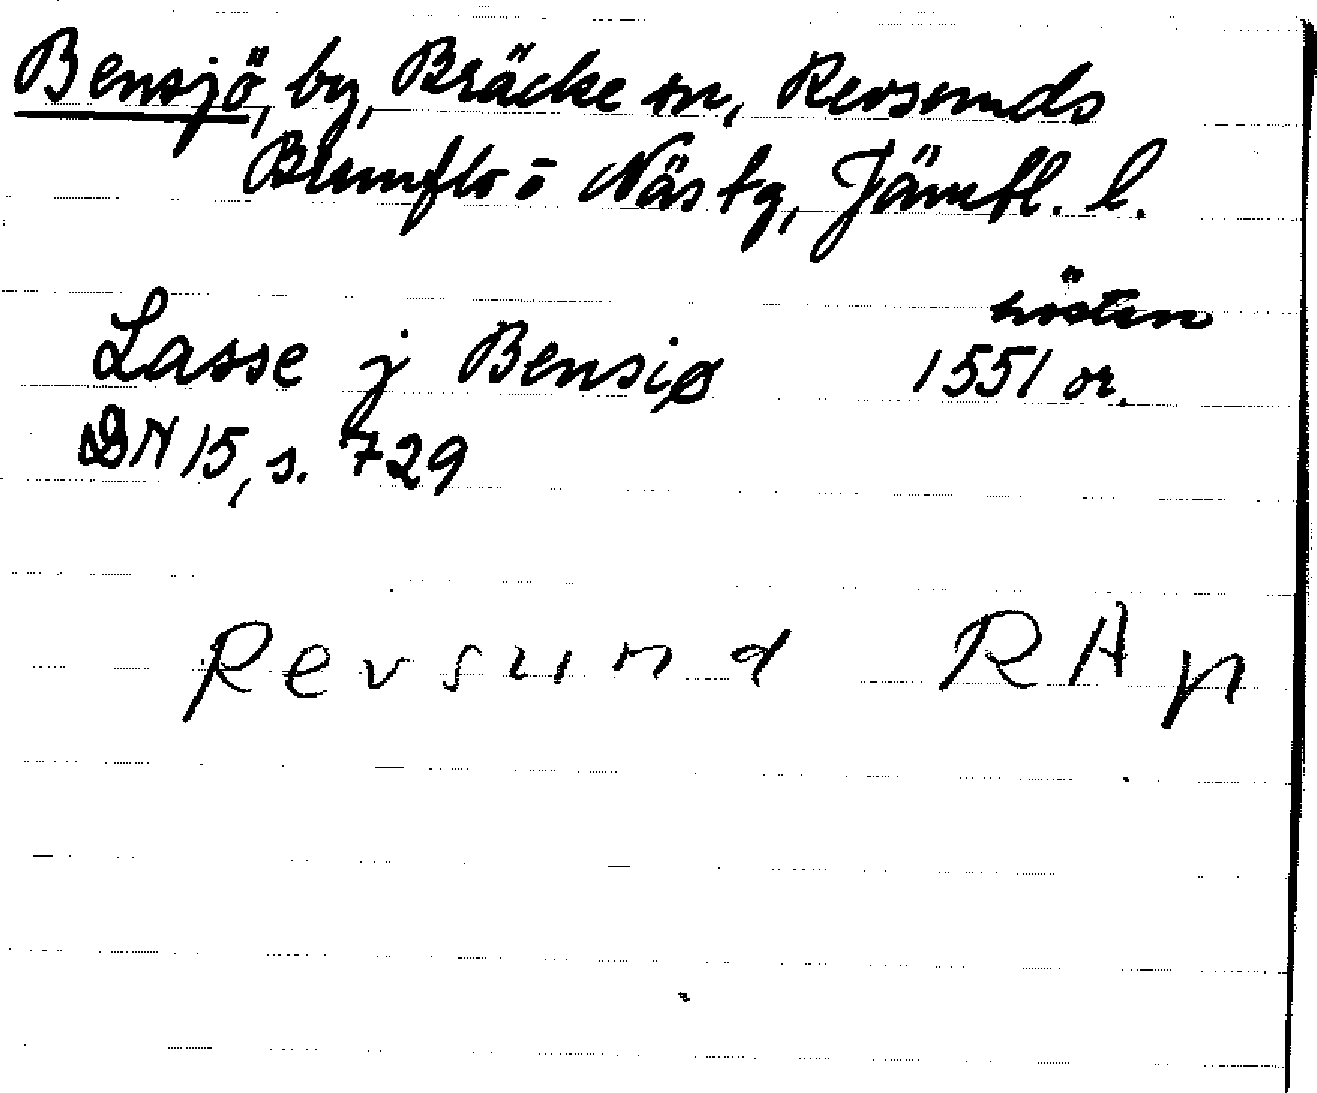 Bensjö, by, Bräcke sn, Revsunds
Brunflo o Näs tg, Jämtl. l.
hösten
Lasse j Bensiø 1551 or.
DN 15, s. 729
Revsund RAp